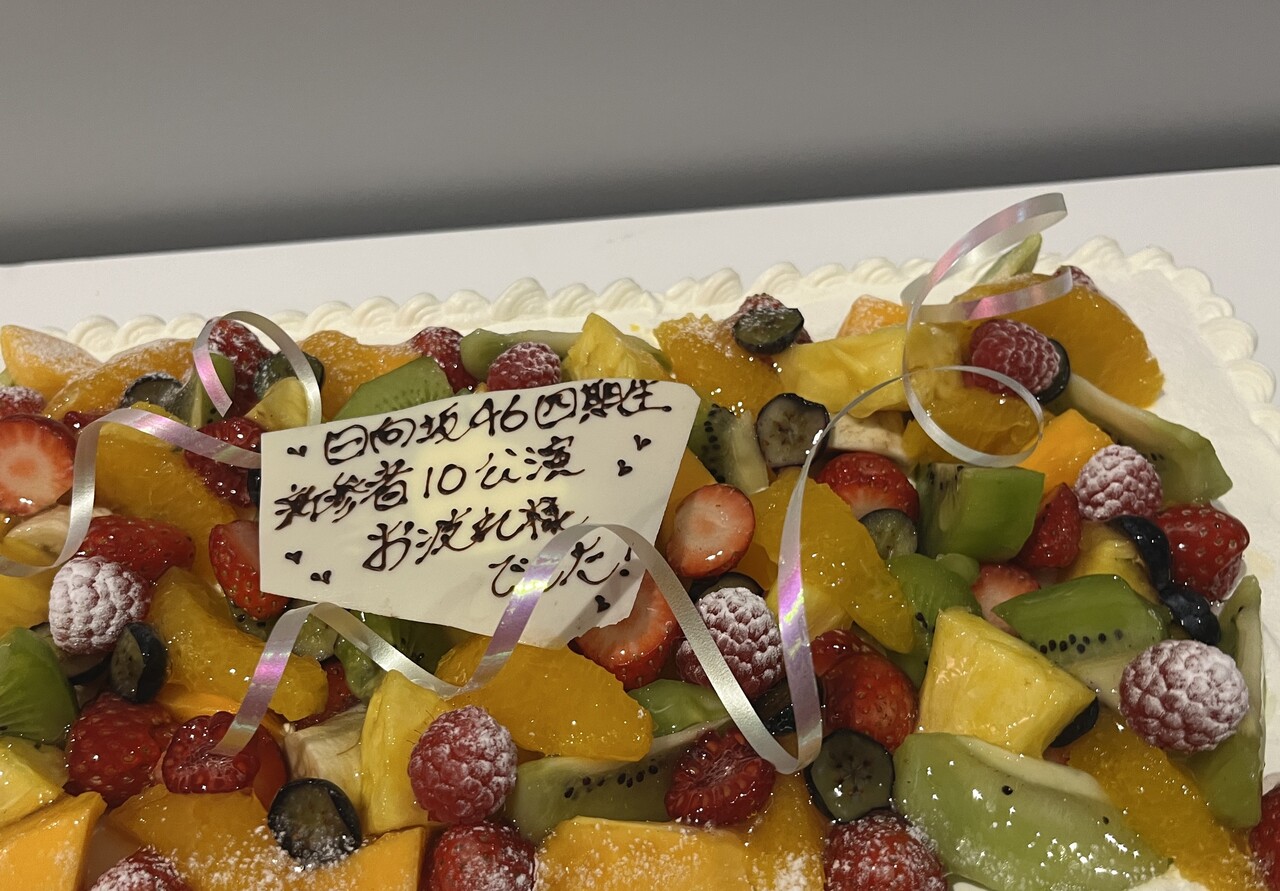 日向坂46四期生
新参者10公演
お疲れ様
でした!